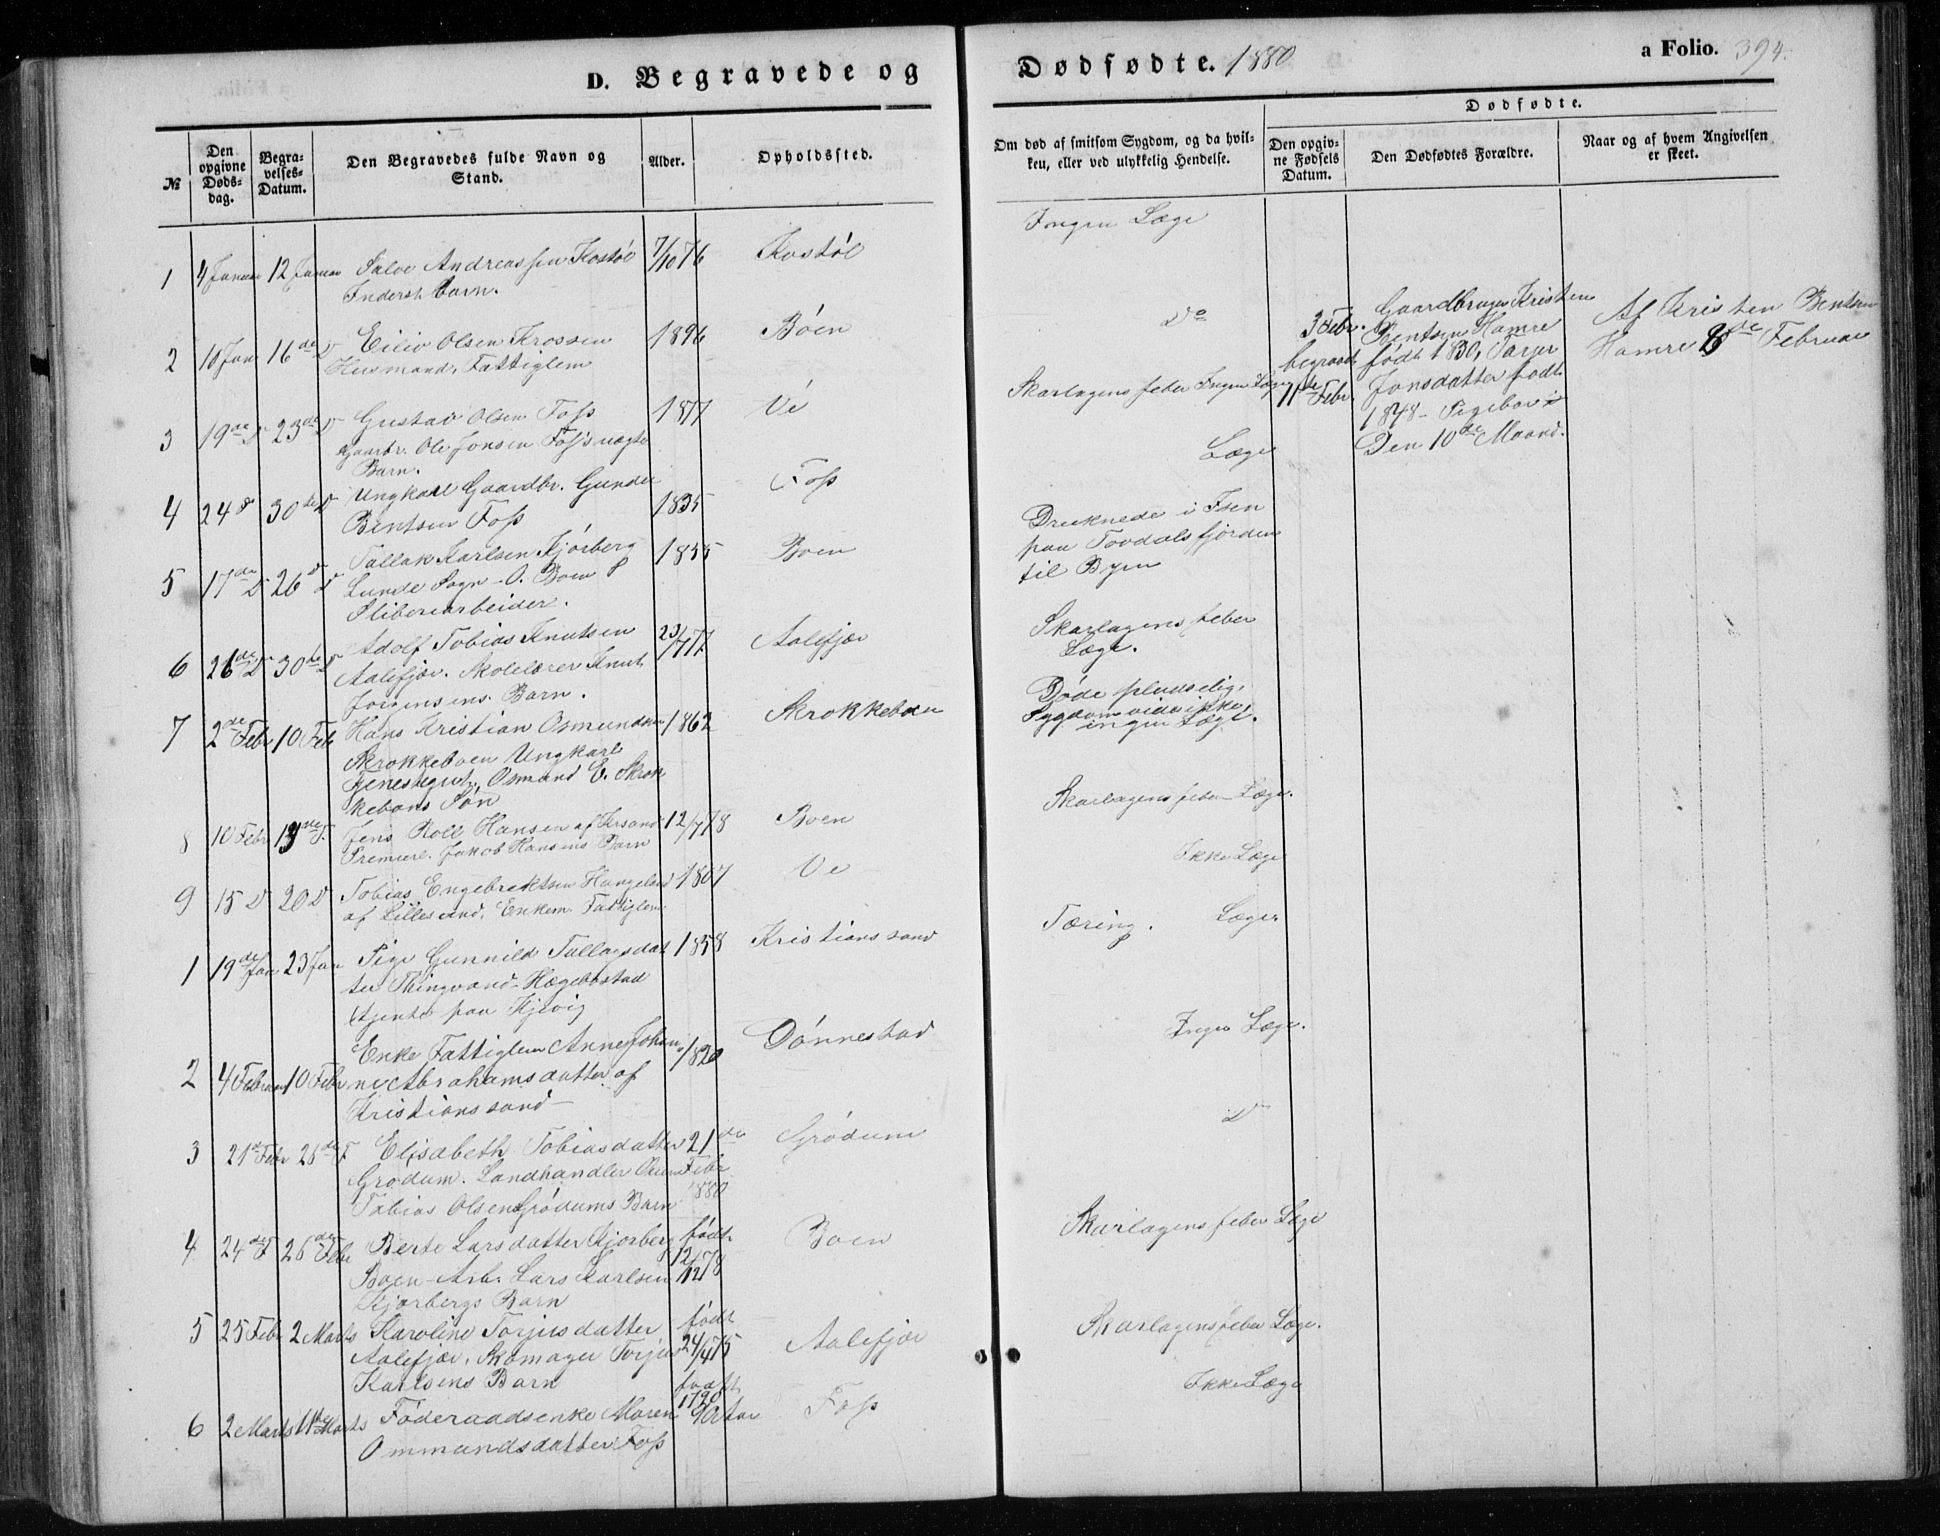 D. Begravede og
Dødfødte. 1880
a Folio. 394.
№
Den opgivne Døds-dag.
Begra-velses-Datum.
Den Begravedes fulde Navn og Stand.
Alder.
Opholdssted.
Om død af smitsom Sygdom, og da hvil-ken, eller ved ulykkelig Hendelse.
Dødfødte.
Den opgiv-ne Fødsels Datum.
Den Dødfødtes Forældre.
Naar og af hvem Angivelsen er skeet.
1 4 Januar 12 Januar Salve Andreassen Kostøl 7/10 76 Kostøl Ingen Læge
Inderst Barn.
2 10 Jan 16de D Eiliv Olsen Krossen 1896 Bóen Do
Husmand, Fattiglem
3 Febr. Gaardbruger Kristen Af Kristen Bentsen
Bentsen Hamre Hamre 8de Februar
begravet født 1830, Tarjer
11te Febr. Jonsdatter født
1848 - Pigebarn
Den 10de Maaned.
3 19de D 23de D Gustav Olsen Foss 1877 Vé Skarlagensfeber Ingen Læge
Gaardbr. Ole Jonsen Foss's uægte
Barn.
4 24 D 30te D Ungkarl Gaardbr. Gunder 1835 Foss Læge
Bentsen Foss
5 17de D 26 D Tallak Karlsen Kjørberg 1855 Boen Druknede i Isen
Lunde Sogn - O. Boen paa Tovdalsfjorden
Sliberiarbeider. til Byen
6 26de D 30te D Adolf Tobias Knutsen 23/7 77 Aalefjær Skarlagensfeber
Aalefjær. Skolelærer Knut Læge.
Jørgensens Barn.
7 2den Febr 10 Feb Hans Kristian Osmundsen 1862 Skrokkeboen Døde pludselig,
Skrokkeboen Ungkarl Sygdom vides ikke,
Tjenestegut, Osmund E. Skrok ingen Læge.
kebøns Søn
8 10 Febr 13de F. Jens Roll Hansen af Krsand 12/7 78 Boen Skarlagensfeber Læge.
Premierl. Jakob Hansens Barn
9 15 D 20 D Tobias Engebrektsen Hangeland 1807 Ve Ikke Læge
af Lillesand. Enkem. Fattiglem
1 19de Jan 23 Jan Pige Gunnild Tallagsdat 1858 Kristianssand Tæring. Læge.
ter Thingvand - Hægebostad
tjente paa Kjevig
2 4 Februar 10 Febr Enke Fattiglem Anne Johan 1820 Dónnestad Ingen Læge.
ne Abrahamsdatter af
Kristianssand
3 21de Febr 26de F Elisabeth Tobiasdatter 21de Gródum D
Grødum. Landhandler Febr
Tobias Olsen Gródums Barn 1880
4 24de F 26de Febr Berte Larsdatter Kjørberg født Boen Skarlagensfeber Læge
Boen - Arb. Lars Karlsen 12/12 78
Kjørbergs Barn
5 25 Febr 2 Marts Karoline Torjusdatter født Aalefjær Skarlagensfeber Læge.
Aalefjær. Skomager Torjus 24/4 75
Karlsens Barn
6 2 Marts 11te Marts Føderaadsenke Maren født 1790 90 Aar Foss Ikke Læge
Ommundsdatter Foss